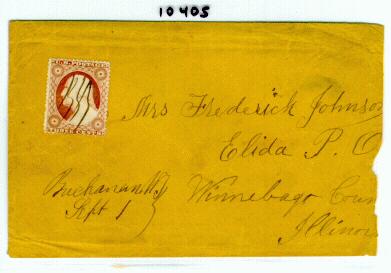 10405
U.S. POSTAGE
Mrs Frederick Johnson
Elida P. O
Winnebago Coun
Illinois
Buchanan
Sept 1